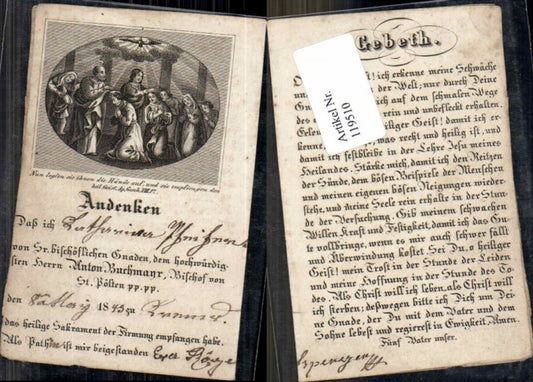 Nun legten sie ihnen die Hände auf, und sie empfiengen den
heil. Geist. Ap. Gesch. VIII. 17.
Andenken
Daß ich Katharina
von Sr. bischöflichen Gnaden, dem hochwürdig-
sten Herrn Anton Buchmayr, Bischof von
St. Pölten pp. pp.
den May 1843 zu Krems
das heilige Sakrament der Firmung empfangen habe.
Als Pathinn ist mir beigestanden Eva
Gebeth.
! ich erkenne meine Schwäche
der Welt; nur durch Deine
ich auf dem schmalen Wege
rein und unbefleckt erhalten.
heiliger Geist! damit ich er-
kenne, was recht und heilig ist, und
damit ich festbleibe in der Lehre Jesu meines
Heilandes. Stärke mich, damit ich den Reitzen
der Sünde, dem bösen Beispiele der Menschen
und meinen eigenen bösen Neigungen wieder-
stehe, und meine Seele rein erhalte in der Stunde
der Versuchung. Gib meinem schwachen
Willen Kraft und Festigkeit, damit ich das Gu-
te vollbringe, wenn es mir auch schwer fällt
und Überwindung kostet. Sei Du, o heiliger
Geist! mein Trost in der Stunde der Leiden
und meine Hoffnung in der Stunde des To-
des. Als Christ will ich leben, als Christ will
ich sterben; deßwegen bitte ich Dich um Dei-
ne Gnade, der Du mit dem Vater und dem
Sohne lebest und regierest in Ewigkeit. Amen.
Fünf Vater unser.
Artikel Nr.
119510